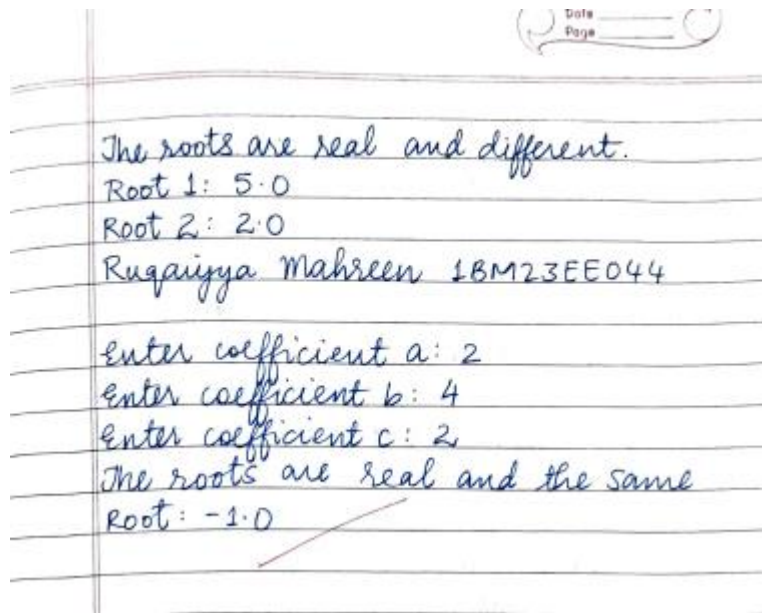 Date
Page
The roots are real and different.
Root 1: 5.0
Root 2: 2.0
Ruqaiyya Mahreen 1BM23EE044
Enter coefficient a: 2
Enter coefficient b: 4
Enter coefficient c: 2
The roots are real and the same
Root: -1.0